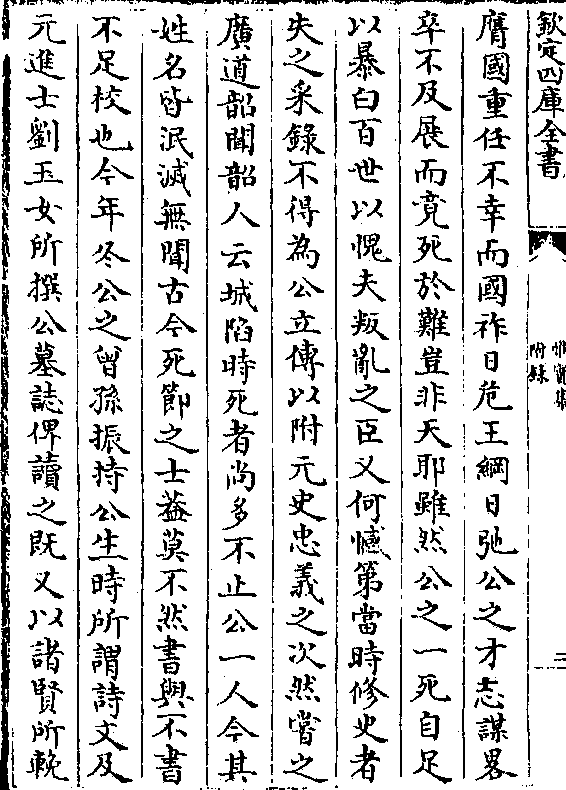 欽定四庫全書
惟實集
附錄
三
膺國重任不幸而國祚日危王綱日弛公之才志謀畧
卒不及展而竟死於難豈非天耶雖然公之一死自足
以暴白百世以愧夫叛亂之臣又何憾第當時修史者
失之采錄不得為公立傳以附元史忠義之次然嘗之
廣道韶聞韶人云城陷時死者尚多不止公一人今其
姓名皆泯滅無聞古今死節之士葢莫不然書與不書
不足校也今年冬公之曾孫振持公生時所謂詩文及
元進士劉玉女所撰公墓誌俾讀之既又以諸賢所輓